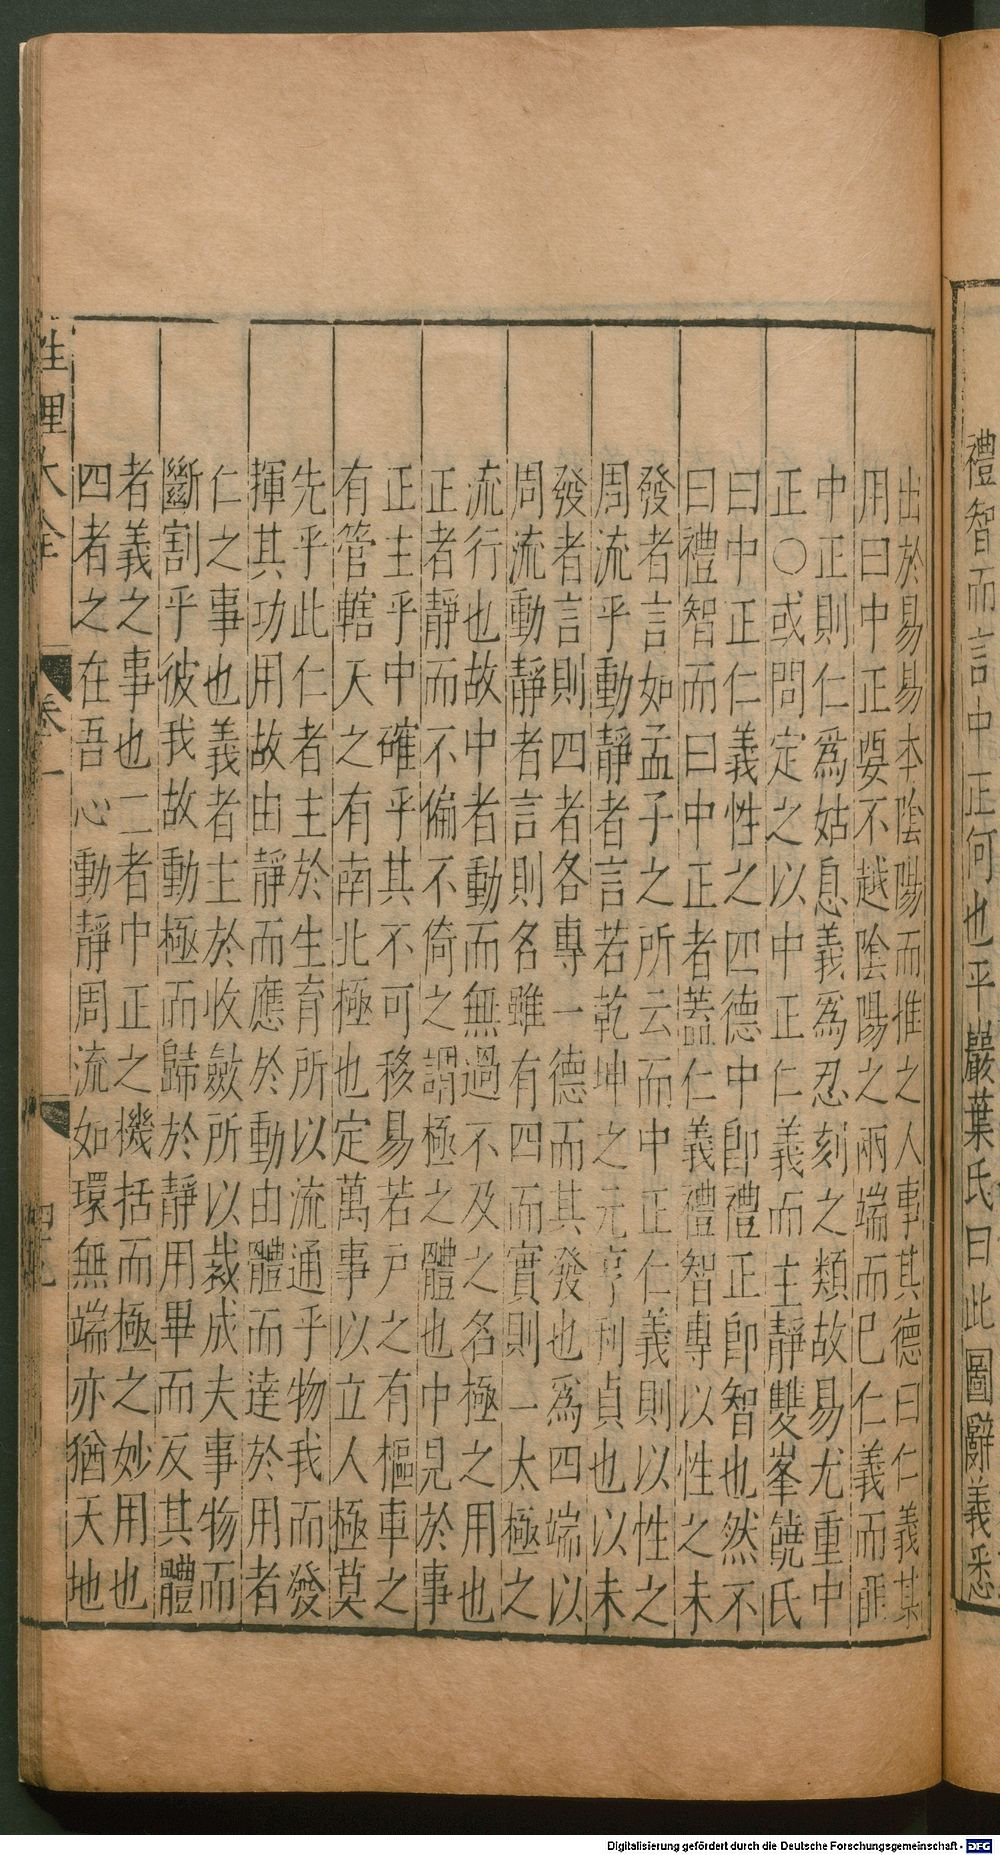 禮智而言中正何也平巖葉氏曰此圖辭義悉
出於易易本陰陽而推之人事其德曰仁義其
用曰中正要不越陰陽之兩端而已仁義而匪
中正則仁爲姑息義爲忍刻之類故易尤重中
正○或問定之以中正仁義而主靜雙峯饒氏
曰中正仁義性之四德中即禮正即智也然不
曰禮智而曰中正者蓋仁義禮智專以性之未
發者言如孟子之所云而中正仁義則以性之
周流乎動靜者言若乾坤之元亨利貞也以未
發者言則四者各專一德而其發也爲四端以
周流動靜者言則名雖有四而實則一太極之
流行也故中者動而無過不及之名極之用也
正者靜而不偏不倚之謂極之體也中見於事
正主乎中確乎其不可移易若戶之有樞車之
有管轄天之有南北極也定萬事以立人極莫
先乎此仁者主於生育所以流通乎物我而發
揮其功用故由靜而應於動由體而達於用者
仁之事也義者主於收斂所以裁成夫事物而
斷割乎彼我故動極而歸於靜用畢而反其體
者義之事也二者中正之機括而極之妙用也
四者之在吾心動靜周流如環無端亦猶天地
性理大全 卷一
Digitalisierung gefördert durch die Deutsche Forschungsgemeinschaft - DFG